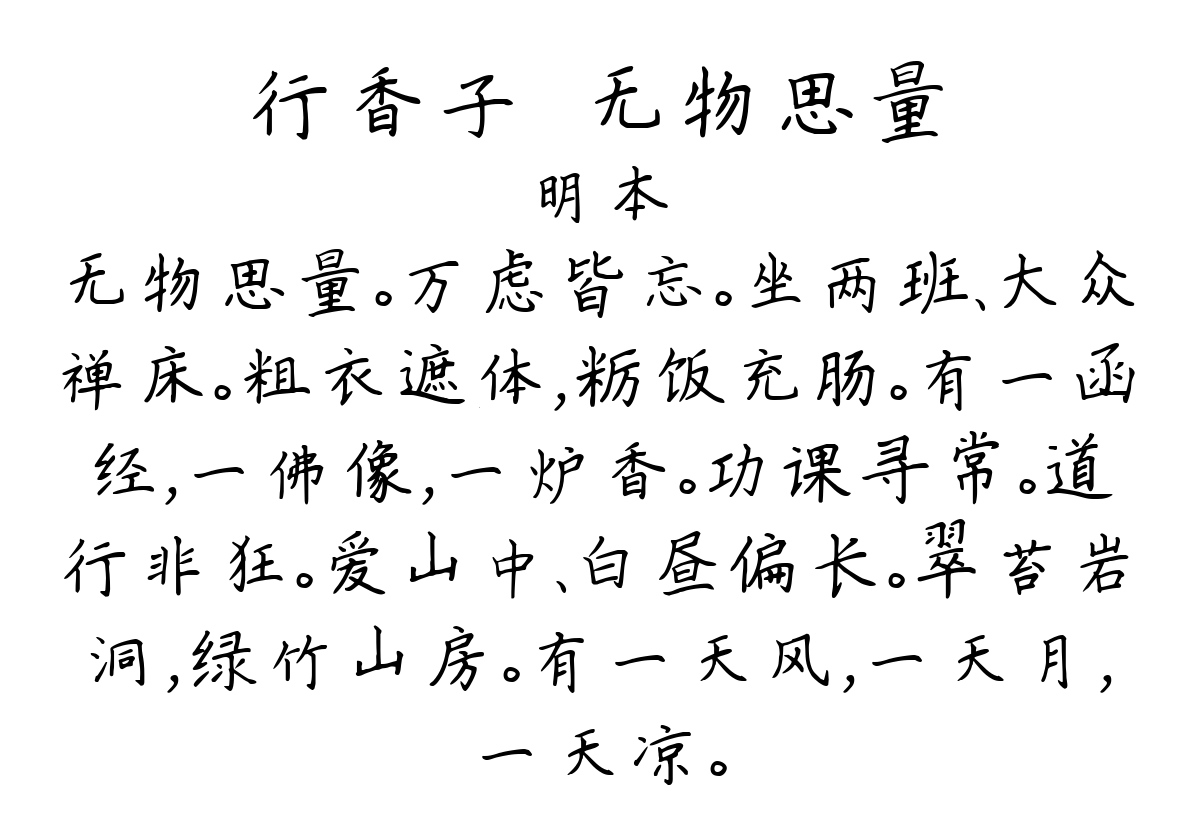 行香子 无物思量
明本
无物思量。万虑皆忘。坐两班、大众
禅床。粗衣遮体,粝饭充肠。有一函
经,一佛像,一炉香。功课寻常。道
行非狂。爱山中、白昼偏长。翠苔岩
洞,绿竹山房。有一天风,一天月,
一天凉。